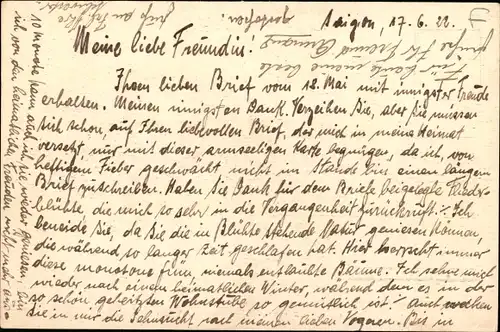 Saigon, 17.6.22.
Meine liebe Freundin!
Ihren lieben Brief vom 12. Mai mit innigster Freude
erhalten. Meinen innigsten Dank. Verzeihen Sie, aber Sie müssen
sich schon, auf Ihren liebevollen Brief, der mich in meine Heimat
versetzt nur mit dieser armseeligen Karte begnügen, da ich, von
heftigem Fieber geschwächt nicht im Stande bin einen längern
Brief zu schreiben. Haben Sie Dank für dem Briefe beigelegte
blühte, die mich so sehr in die Vergangenheit zurückruft. Ich
beneide Sie, da Sie die in Blühte stehende Natur geniesen können,
die während so langer Zeit geschlafen hat. Hier herrscht immer
diese monotone niemals entlaubte Bäume. Ich sehne mich
wieder nach einem heimatlichen Winter, während dem es in der
so schön geheizten Wohnstube so gemütlich ist! auch wecken
Sie in mir die Sehnsucht nach meinen lieben Vogesen. Bis in
10 Monate kann auch ich sie wieder geniessen, bin
ich von den heimatlichen Freuden nicht mehr